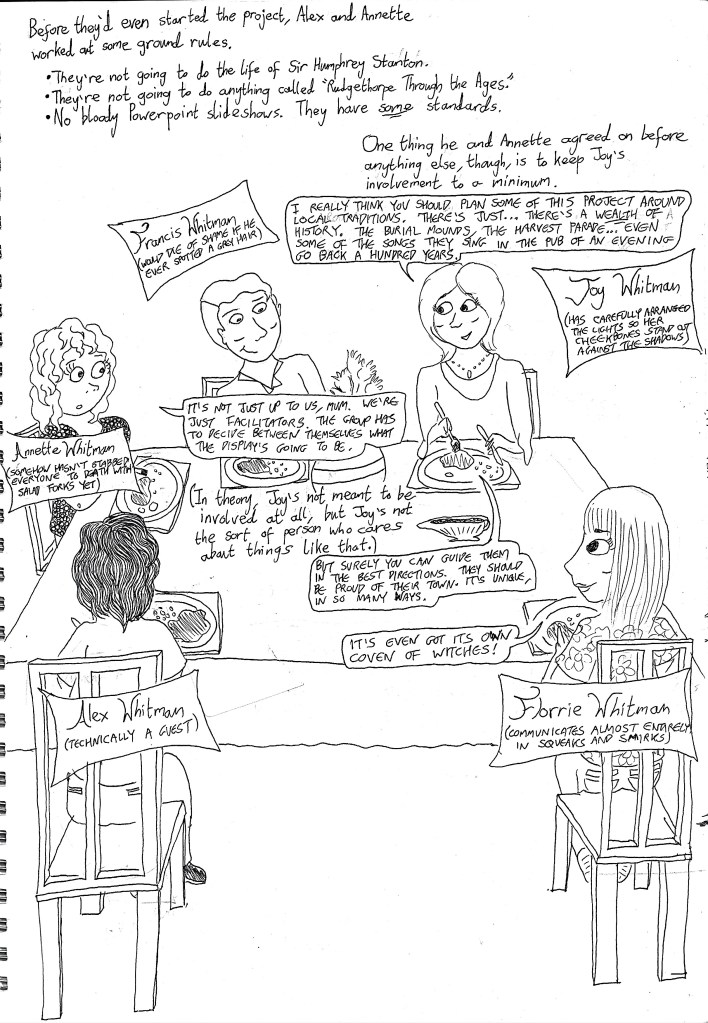 Before they'd even started the project, Alex and Annette
worked out some ground rules.
• They're not going to do the life of Sir Humphrey Stanton.
• They're not going to do anything called "Rudgethorpe Through the Ages."
• No bloody Powerpoint slideshows. They have some standards.
One thing he and Annette agreed on before
anything else, though, is to keep Joy's
involvement to a minimum.
Francis Whitman
(WOULD DIE OF SHAME IF HE
EVER SPOTTED A GREY HAIR)
I REALLY THINK YOU SHOULD PLAN SOME OF THIS PROJECT AROUND
LOCAL TRADITIONS. THERE'S JUST... THERE'S A WEALTH OF
HISTORY. THE BURIAL MOUNDS, THE HARVEST PARADE... EVEN
SOME OF THE SONGS THEY SING IN THE PUB OF AN EVENING
GO BACK A HUNDRED YEARS.
Joy Whitman
(HAS CAREFULLY ARRANGED
THE LIGHTS SO HER
CHEEKBONES STAND OUT
AGAINST THE SHADOWS)
IT'S NOT JUST UP TO US, MUM. WE'RE
JUST FACILITATORS. THE GROUP HAS
TO DECIDE BETWEEN THEMSELVES WHAT
THE DISPLAY'S GOING TO BE.
Annette Whitman
(SOMEHOW HASN'T STABBED
EVERYONE TO DEATH WITH
SALAD FORKS YET)
(In theory, Joy's not meant to be
involved at all, but Joy's not
the sort of person who cares
about things like that.)
BUT SURELY YOU CAN GUIDE THEM
IN THE BEST DIRECTIONS. THEY SHOULD
BE PROUD OF THEIR TOWN. IT'S UNIQUE,
IN SO MANY WAYS.
IT'S EVEN GOT ITS OWN
COVEN OF WITCHES!
Alex Whitman
(TECHNICALLY A GUEST)
Florrie Whitman
(COMMUNICATES ALMOST ENTIRELY
IN SQUEAKS AND SMIRKS)